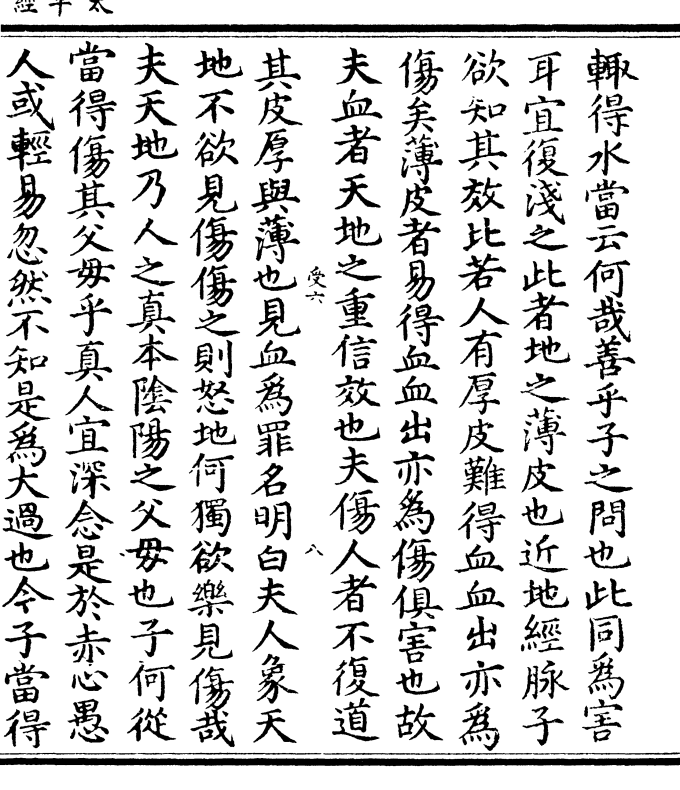 太平經
輙得水當云何哉善乎子之問也此同爲害
耳宜復淺之此者地之薄皮也近地經脉子
欲知其效比若人有厚皮難得血血出亦爲
傷矣薄皮者易得血血出亦爲傷俱害也故
夫血者天地之重信效也夫傷人者不復道
受六
八
其皮厚與薄也見血爲罪名明白夫人象天
地不欲見傷傷之則怒地何獨欲樂見傷哉
夫天地乃人之真本陰陽之父毋也子何從
當得傷其父毋乎真人宜深念是於赤心愚
人或輕易忽然不知是爲大過也今子當得